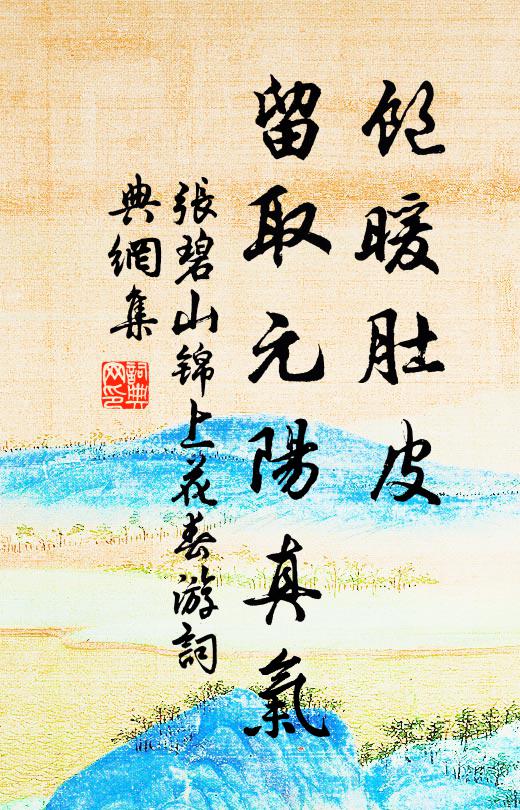 飽暖肚皮
留取元陽真氣
張碧山錦上花春游詞
典網集
詞典
网印